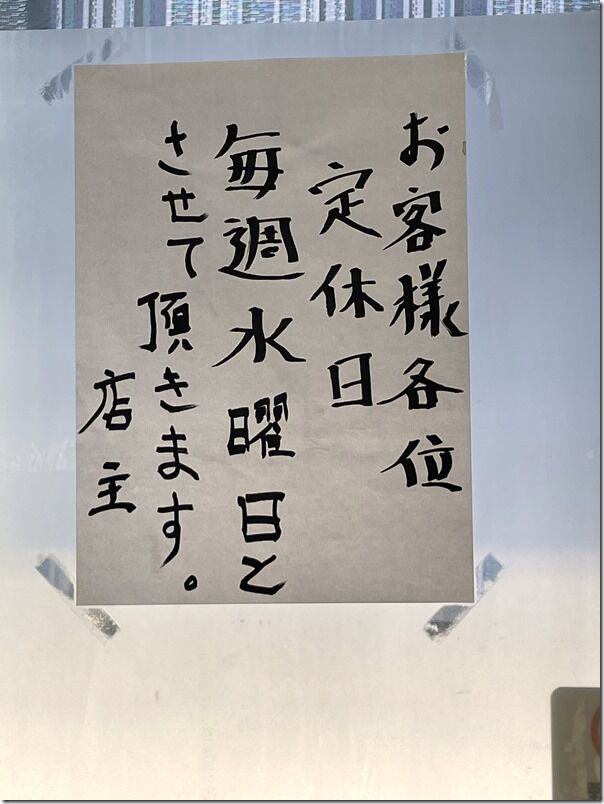 お客様各位
定休日
毎週水曜日と
させて頂きます。
店主